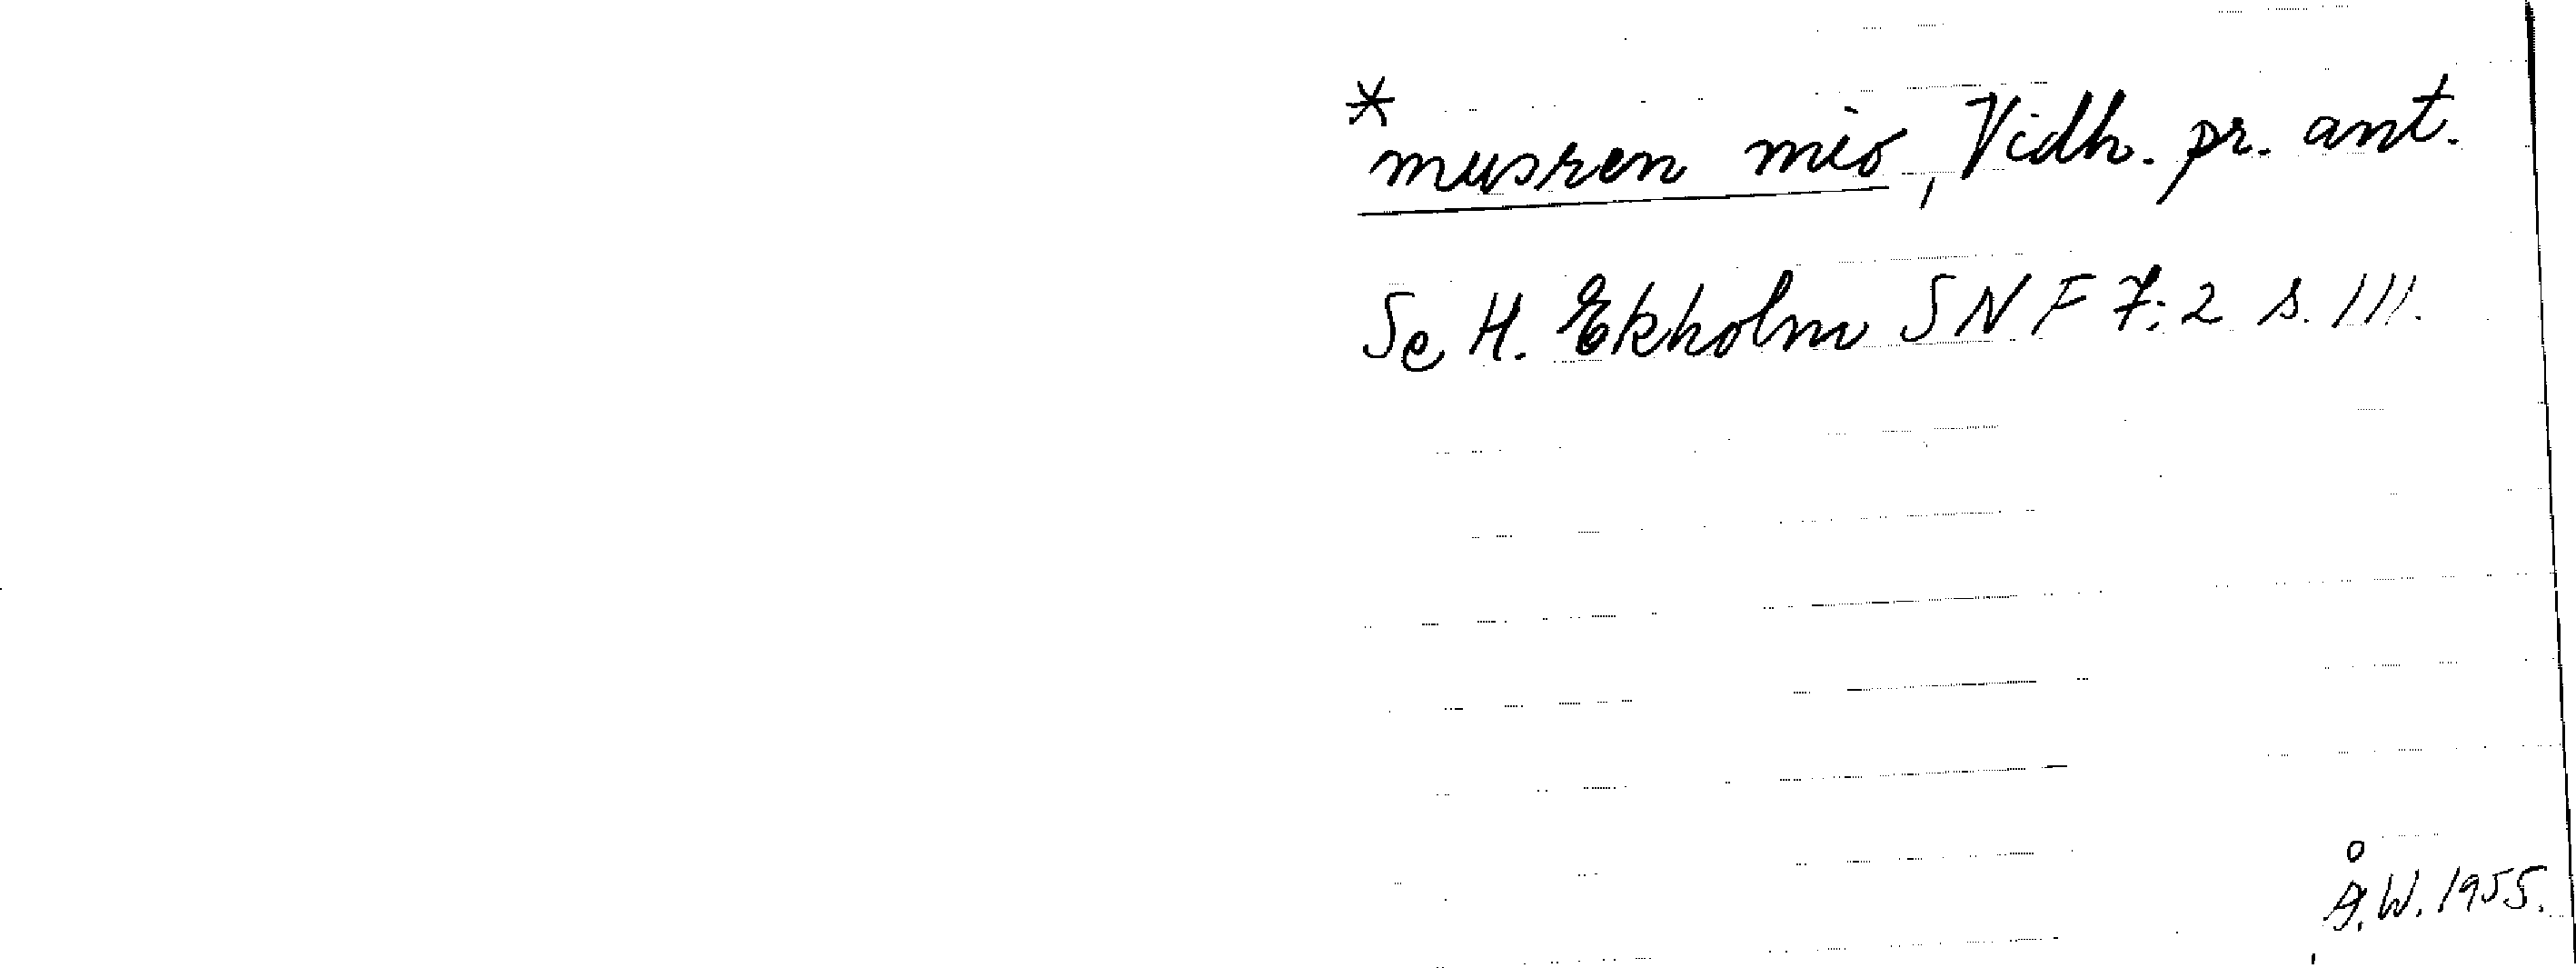 *
musren mio, Vidh. pr. ant.
Se H. Ekholm SNF 7:2 s. 111.
Å.W. 1955.